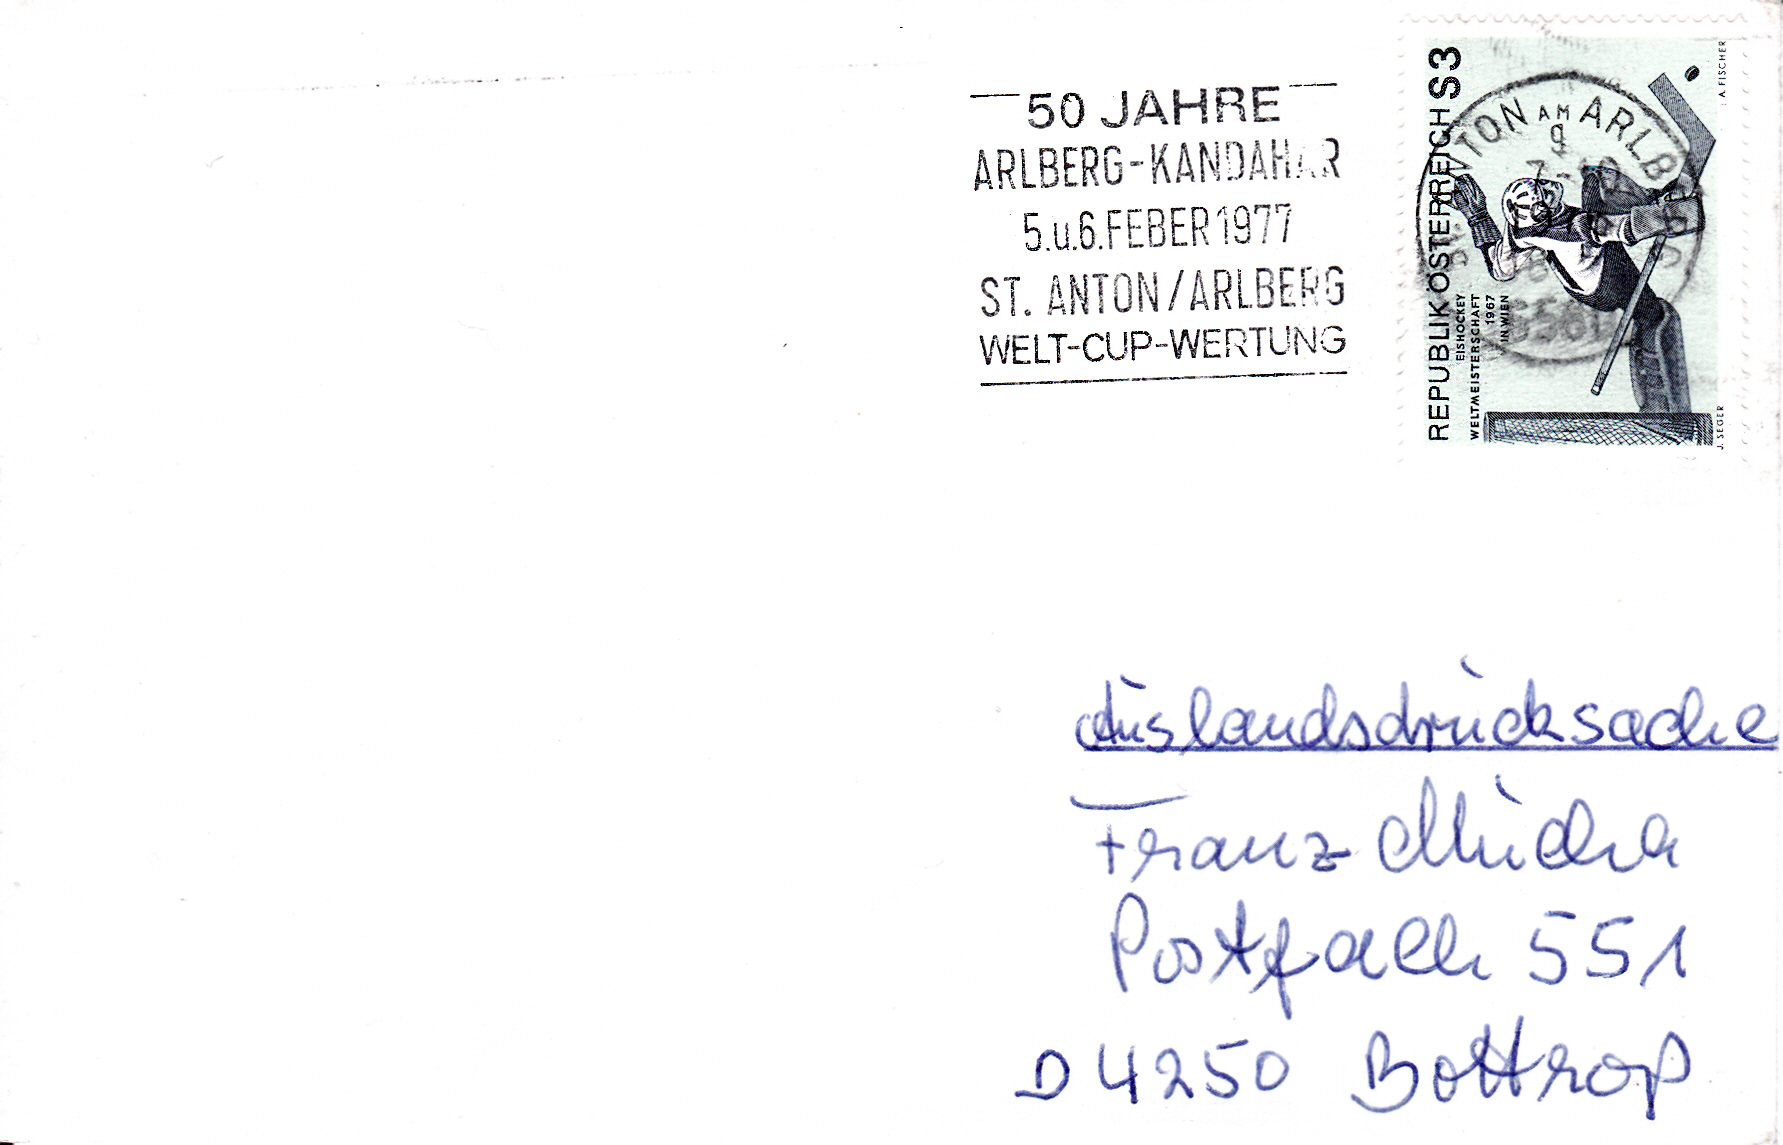 50 JAHRE
ARLBERG-KANDAHAR
5.u.6.FEBER 1977
ST. ANTON/ARLBERG
WELT-CUP-WERTUNG
REPUBLIK ÖSTERREICH S3
EISHOCKEY
WELTMEISTERSCHAFT
1967
IN WIEN
J. SEGER
A. FISCHER
ANTON AM ARLB
Auslandsdrucksache
Franz Mücha
Postfach 551
D 4250 Bottrop